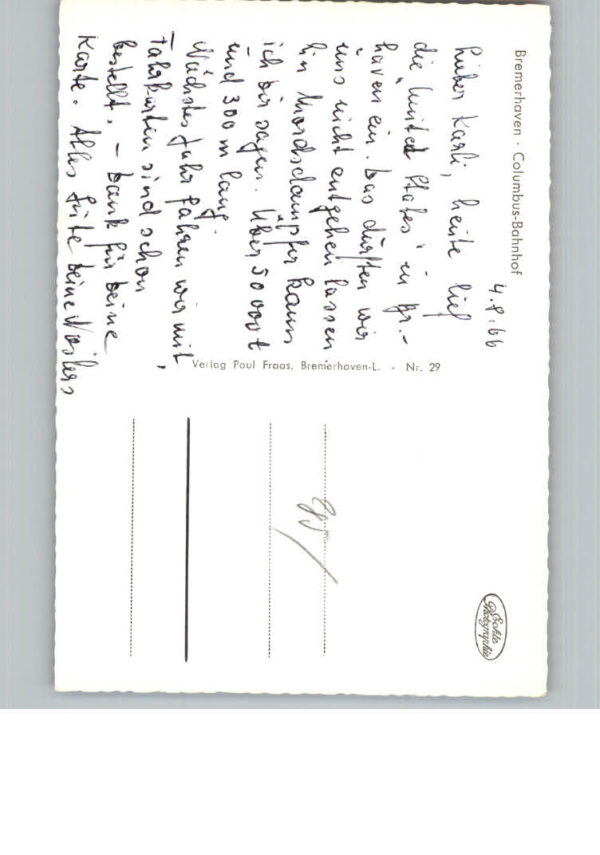 Bremerhaven · Columbus-Bahnhof
4.8.66
Lieber Karli, heute lief
die "United States" in Br.-
haven ein. Das durften wir
uns nicht entgehen lassen
Ein Mordsdampfer kann
ich dir sagen. Über 50000t
und 300 m lang.
Nächstes Jahr fahren wir mit,
Fahrkarten sind schon
bestellt. – Dank für deine
Karte. Alles Gute deine
Verlag Paul Fraas, Bremerhaven-L. - Nr. 29
Echte
Photographie